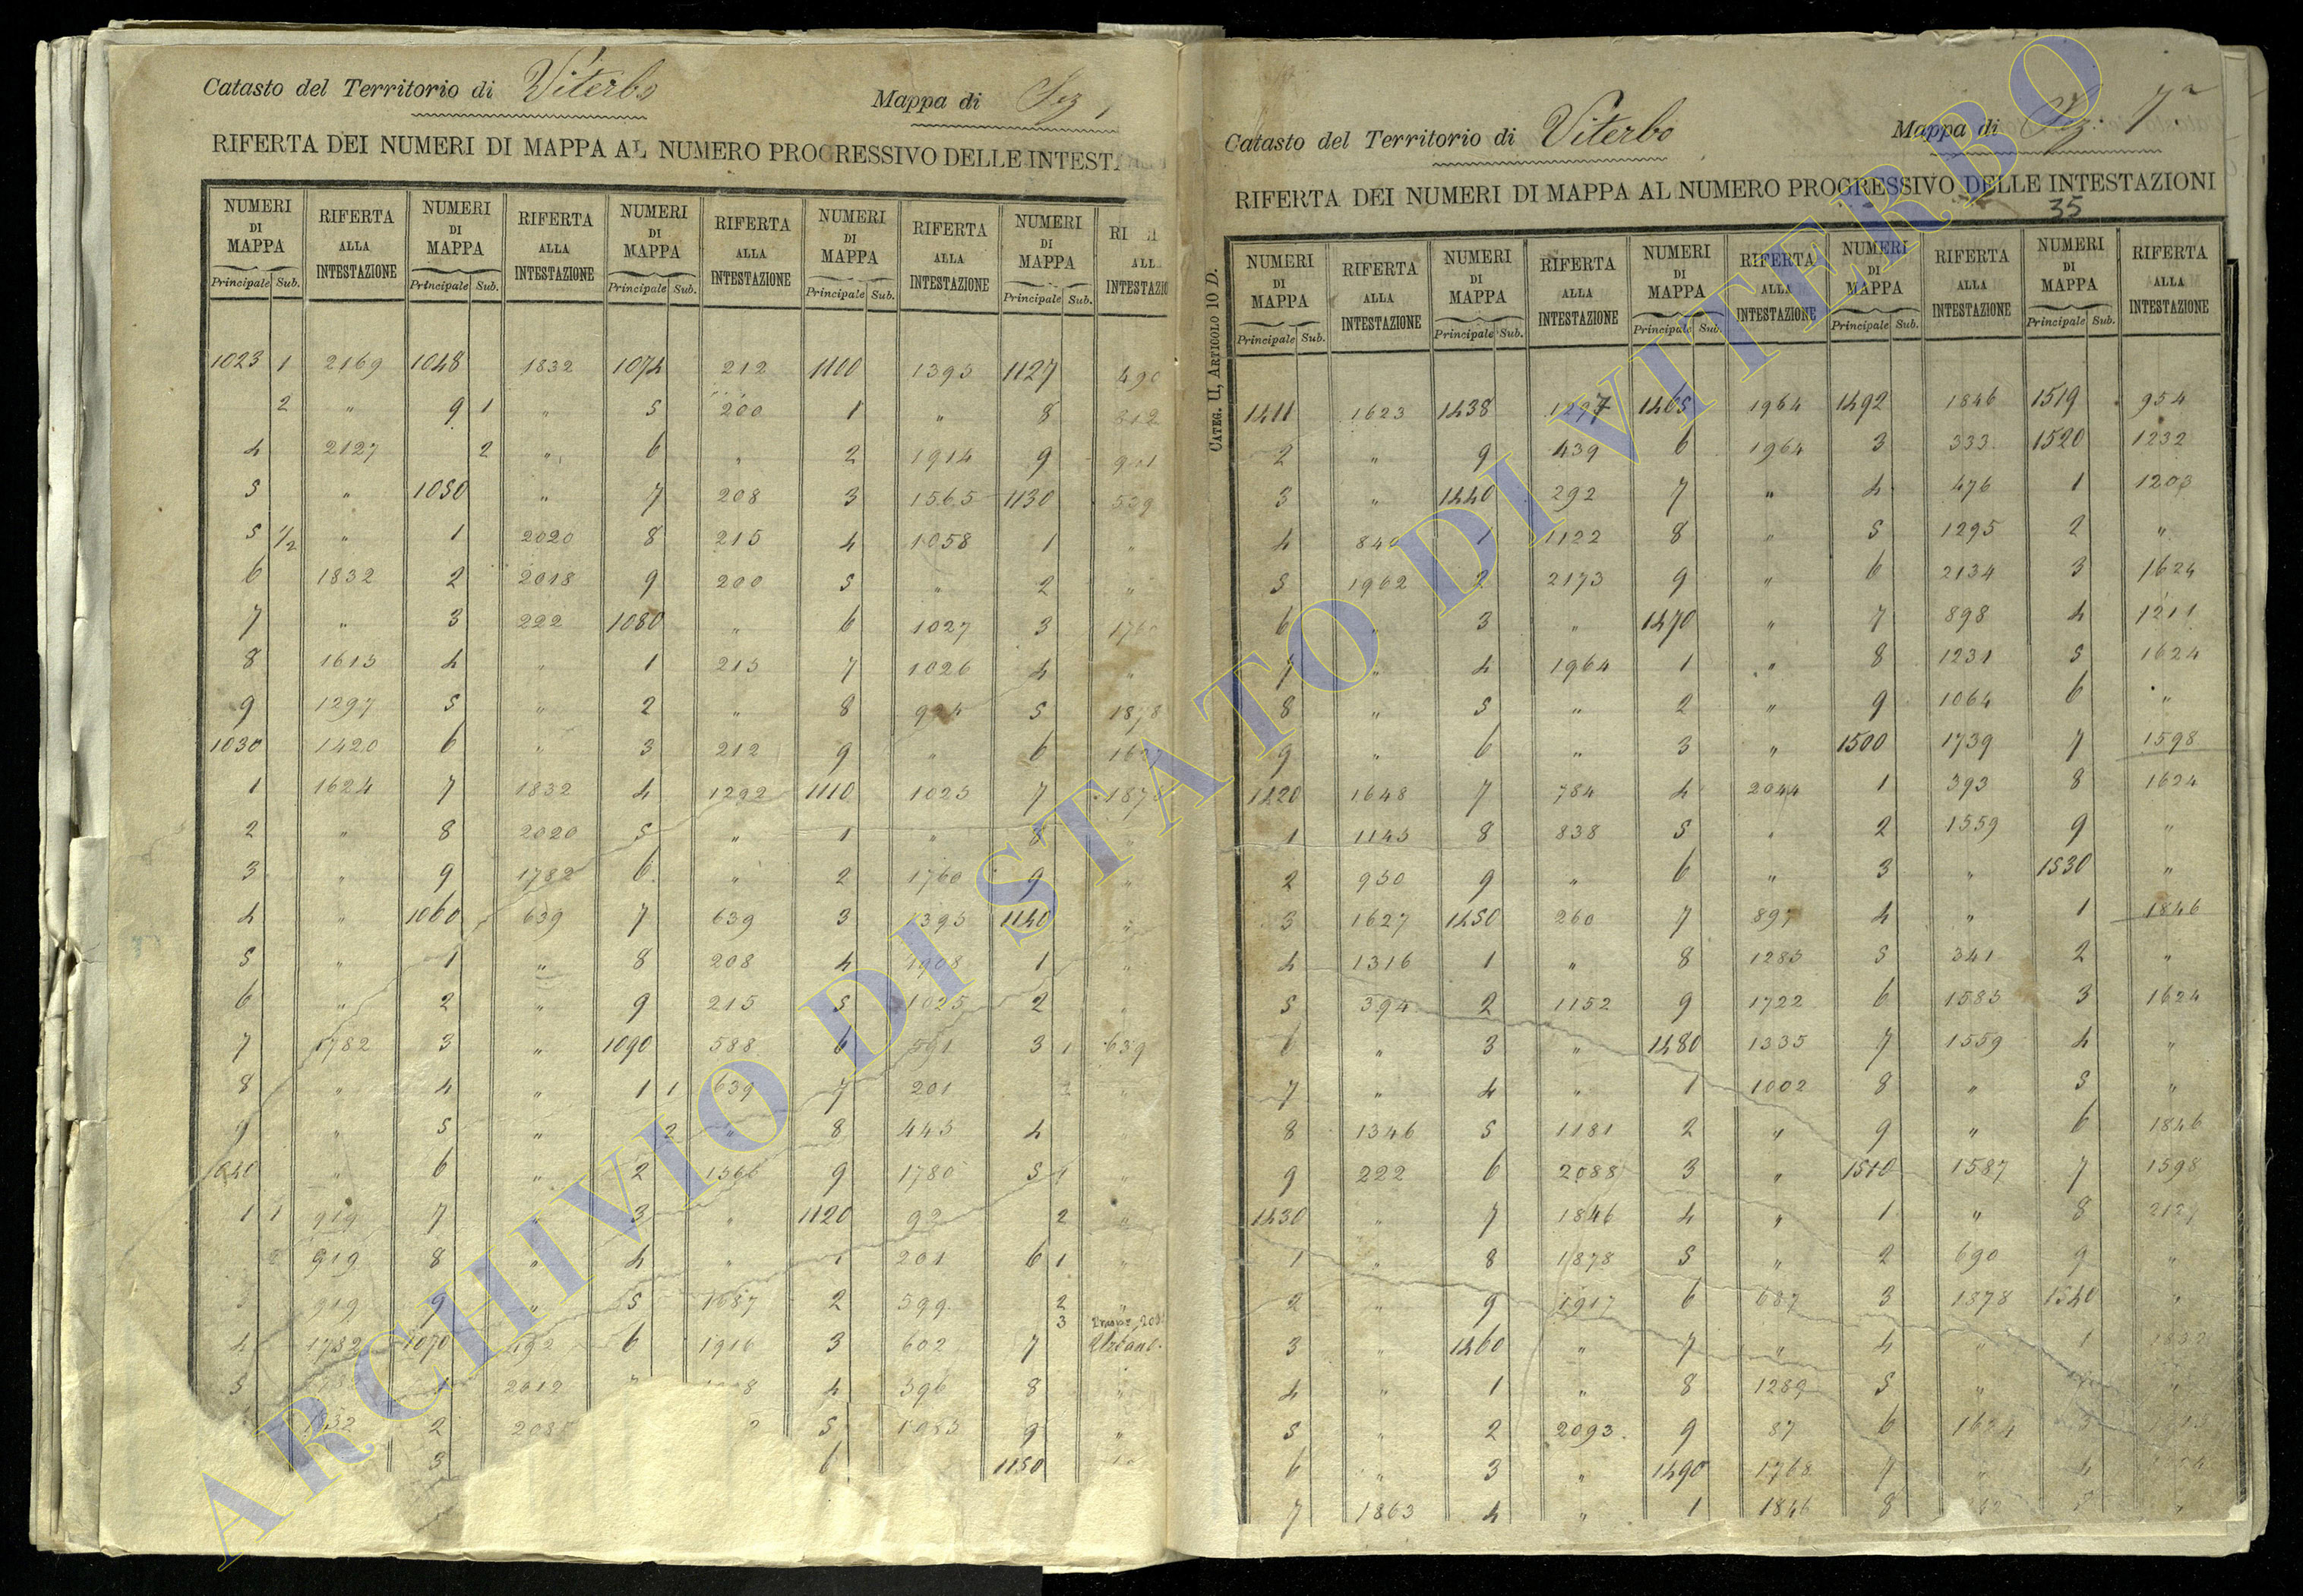 Catasto del Territorio di Viterbo Mappa di Sez
RIFERTA DEI NUMERI DI MAPPA AL NUMERO PROGRESSIVO DELLE
NUMERI DI MAPPA RIFERTA ALLA INTESTAZIONE NUMERI DI MAPPA RIFERTA ALLA INTESTAZIONE NUMERI DI MAPPA RIFERTA ALLA INTESTAZIONE NUMERI DI MAPPA RIFERTA ALLA INTESTAZIONE NUMERI DI MAPPA
Principale Sub. Principale Sub. Principale Sub. Principale Sub. Principale Sub.
1023 1 2169 1048 1832 1074 212 1100 1393 1127 490
2 " 9 1 " 5 200 1 " 8 312
4 2127 2 " 6 " 2 1914 9
5 " 1050 " 7 208 3 1565 1130 539
5 1/2 " 1 2020 8 215 4 1058 1 "
6 1832 2 2018 9 200 5 " 2 "
7 " 3 222 1080 " 6 1027 3
8 1613 4 " 1 215 7 1026 4 "
9 1297 5 " 2 " 8 5 1878
1030 1420 6 " 3 212 9 " 6
1 1624 7 1832 4 1292 1110 1025 7
2 " 8 2020 5 " 1 " 8 "
3 " 9 1782 6 " 2 1760 9 "
4 " 1060 639 7 639 3 1393 1140 "
5 " 1 " 8 208 4 1908 1 "
6 " 2 " 9 215 5 1025 2 "
7 1782 3 " 1090 588 6 591 3 1 639
8 " 4 " 1 1 639 7 201 "
9 " 5 " 2 " 8 445 4
1040 " 6 " 2 1566 9 1780 5 1 "
1 1 919 7 " 3 " 1120 92 2 "
919 8 " 4 " 1 201 6 1 "
919 9 " 5 1687 2 599 2 "
3
4 1782 1070 192 6 1916 3 602 7
5 1 2012 4 396 8 "
2 5 9 "
3 6 1150
Catasto del Territorio di Viterbo Mappa di Sez: 7ª
RIFERTA DEI NUMERI DI MAPPA AL NUMERO PROGRESSIVO DELLE INTESTAZIONI
35
CATEG. U, ARTICOLO 10 D.
NUMERI DI MAPPA RIFERTA ALLA INTESTAZIONE NUMERI DI MAPPA RIFERTA ALLA INTESTAZIONE NUMERI DI MAPPA RIFERTA ALLA INTESTAZIONE NUMERI DI MAPPA RIFERTA ALLA INTESTAZIONE NUMERI DI MAPPA RIFERTA ALLA INTESTAZIONE
Principale Sub. Principale Sub. Principale Sub. Principale Sub. Principale Sub.
1411 1623 1438 1297 1465 1964 1492 1846 1519 954
2 " 9 439 6 1964 3 333 1520 1232
3 " 1440 292 7 " 4 476 1 1203
4 1 1122 8 " 5 1295 2 "
5 1962 2 2173 9 " 6 2134 3 1624
6 " 3 " 1470 " 7 898 4 1211
7 " 4 1964 1 " 8 1231 5 1624
8 " 5 " 2 " 9 1064 6 "
9 " 6 " 3 " 1500 1739 7 1598
1420 1648 7 784 4 2044 1 393 8 1624
1 1145 8 838 5 " 2 1559 9 "
2 950 9 " 6 " 3 " 1530 "
3 1627 1450 260 7 897 4 " 1 1846
4 1316 1 " 8 1285 5 341 2 "
5 394 2 1152 9 1722 6 1585 3 1624
6 " 3 " 1480 1335 7 1559 4 "
7 " 4 " 1 1002 8 " 5 "
8 1346 5 1181 2 " 9 " 6 1846
9 222 6 2088 3 " 1510 1587 7 1598
1430 " 7 1846 4 " 1 " 8
1 " 8 1878 5 " 2 690 9 "
2 " 9 1917 6 687 3 1878 1540 "
3 " 1460 " 7 " 4 " 1
4 " 1 " 8 1289 5 "
5 " 2 2093 9 87 6 1624 3
6 " 3 " 1490 1768 7 " 4
7 1863 4 " 1 1846 8
ARCHIVIO DI STATO DI VITERBO